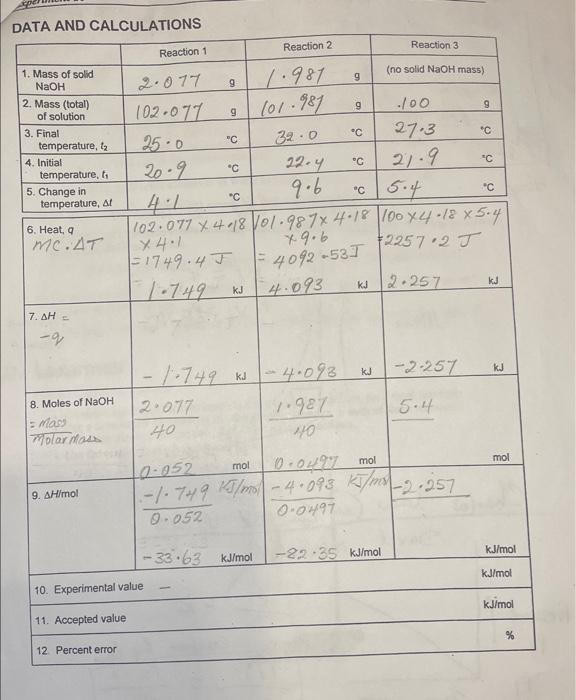 DATA AND CALCULATIONS
Reaction 1 Reaction 2 Reaction 3
1. Mass of solid NaOH 2.077 g 1.987 g (no solid NaOH mass)
2. Mass (total) of solution 102.077 g 101.987 g .100 g
3. Final temperature, t₂ 25.0 °C 32.0 °C 27.3 °C
4. Initial temperature, t₁ 20.9 °C 22.4 °C 21.9 °C
5. Change in temperature, Δt 4.1 °C 9.6 °C 5.4 °C
6. Heat, q 102.077 x 4.18 101.987 x 4.18 100 x 4.18 x 5.4
MC.ΔT x 4.1 x 9.6 = 2257.2 J
= 1749.4 J = 4092.53J
1.749 kJ 4.093 kJ 2.257 kJ
7. ΔH =
-q
- 1.749 kJ - 4.093 kJ -2.257 kJ
8. Moles of NaOH 2.077 1.987 5.4
= Mass 40 40
Molar Mass
0.052 mol 0.0497 mol mol
9. ΔH/mol -1.749 KJ/mol -4.093 KJ/mol -2.257
0.052 0.0497
-33.63 kJ/mol -82.35 kJ/mol kJ/mol
10. Experimental value – kJ/mol
11. Accepted value kJ/mol
12. Percent error %